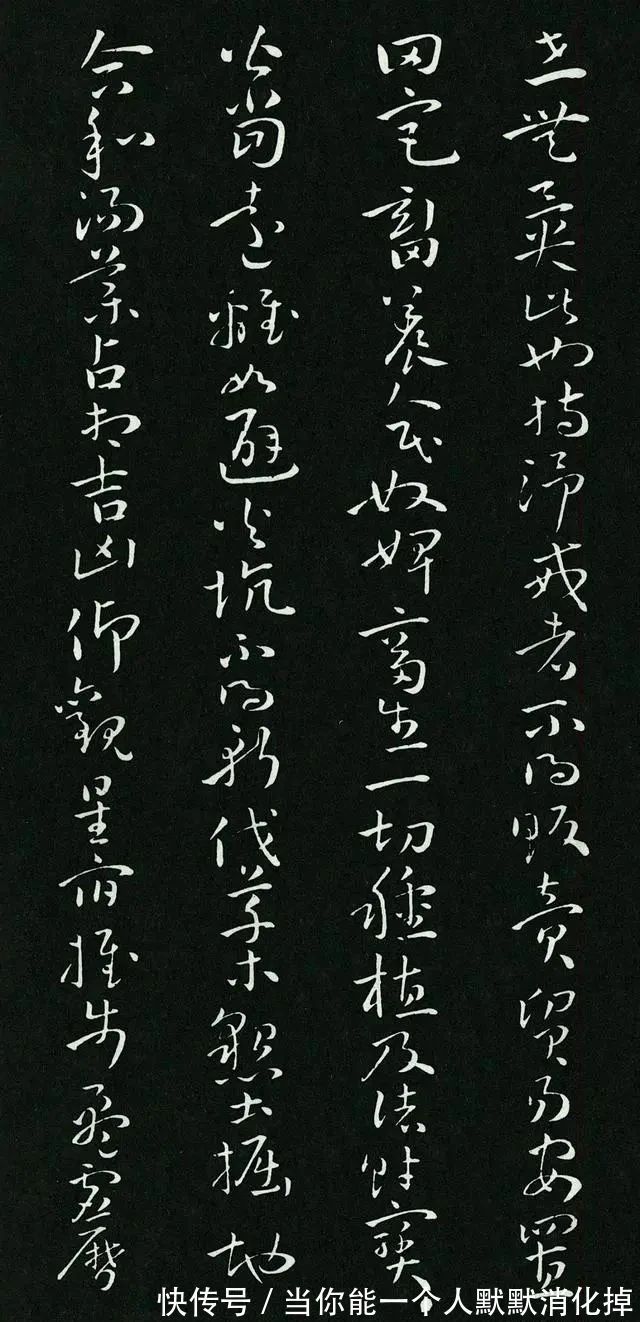 世無異此也持淨戒者不得販賣貿易安置
田宅畜養人民奴婢畜生一切種植及諸財寶
皆當遠離如避火坑不得斬伐草木墾土掘地
合和湯藥占相吉凶仰觀星宿推步盈虛曆
快传号/当你能一个人默默消化掉